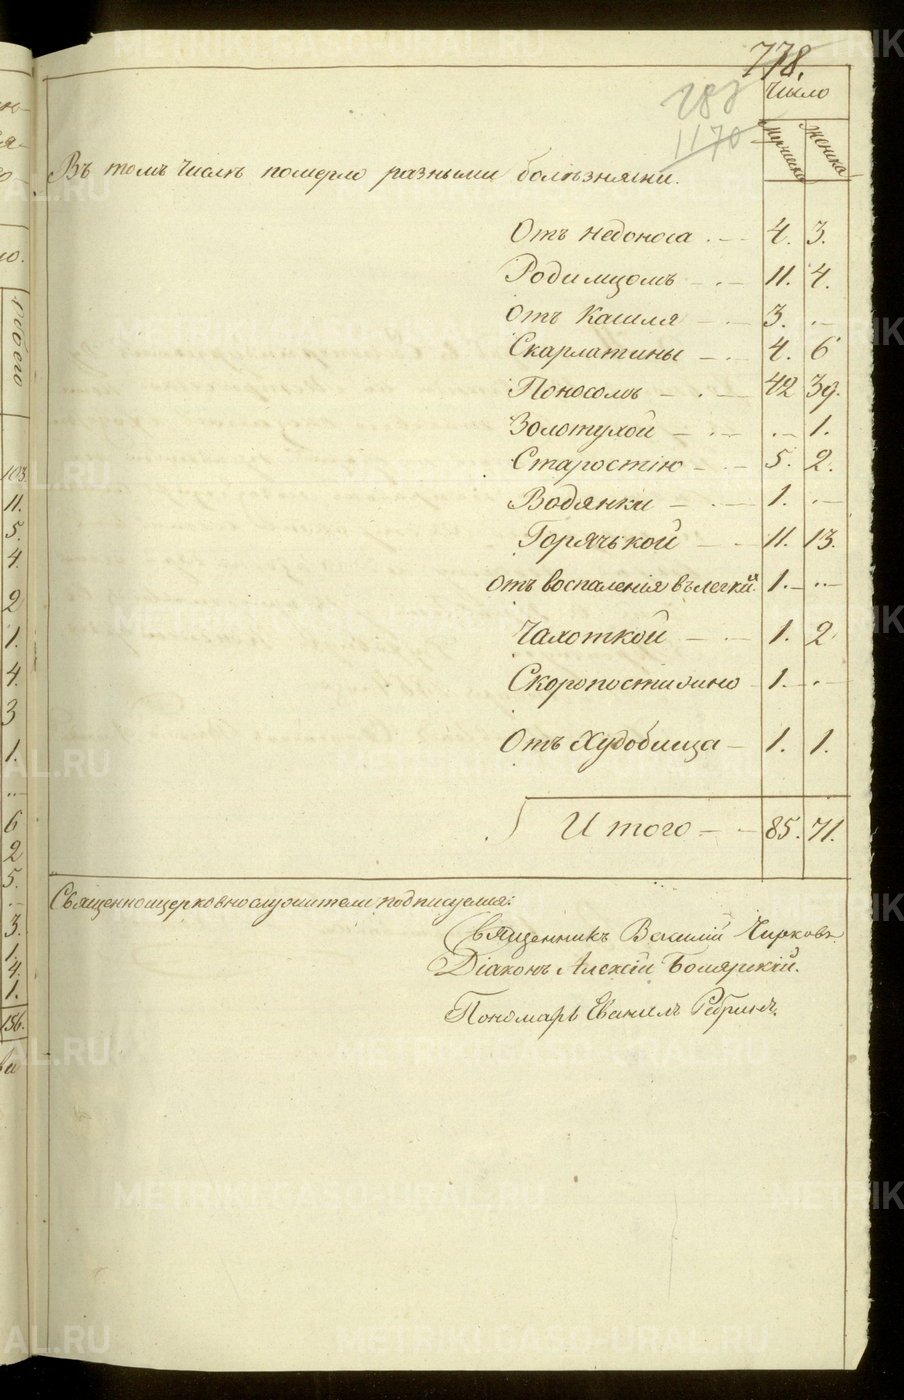 778.
287
1170
Число
Мужеска
Женска
Въ томъ числѣ померло разными болѣзнями.
Отъ недоноса . — 4. 3.
Родимцомъ — . — 11. 4.
Отъ Кашля — — 3. . —
Скарлатины — . — 4. 6
Поносомъ — . — 42 39.
Золотухой — . — . — 1.
Старостію — . — 5. 2.
Водянки — . — 1. . —
Горячькой — — 11. 13.
Отъ воспаленія въ легкихъ 1. — . —
Чахоткой — — 1. 2
Скоропостижно — 1. — . —
Отъ Худобища — 1. 1.
Итого — — 85. 71.
Священноцерковнослужители подписуемся:
Священникъ Василій Чирковъ.
Діаконъ Алексій Бояршій.
Пономарь
103.
11.
5.
4.
2
1.
4.
3
1.
6
2
5.
3.
1.
4.
1.
156.
METRIKI.GASO-URAL.RU